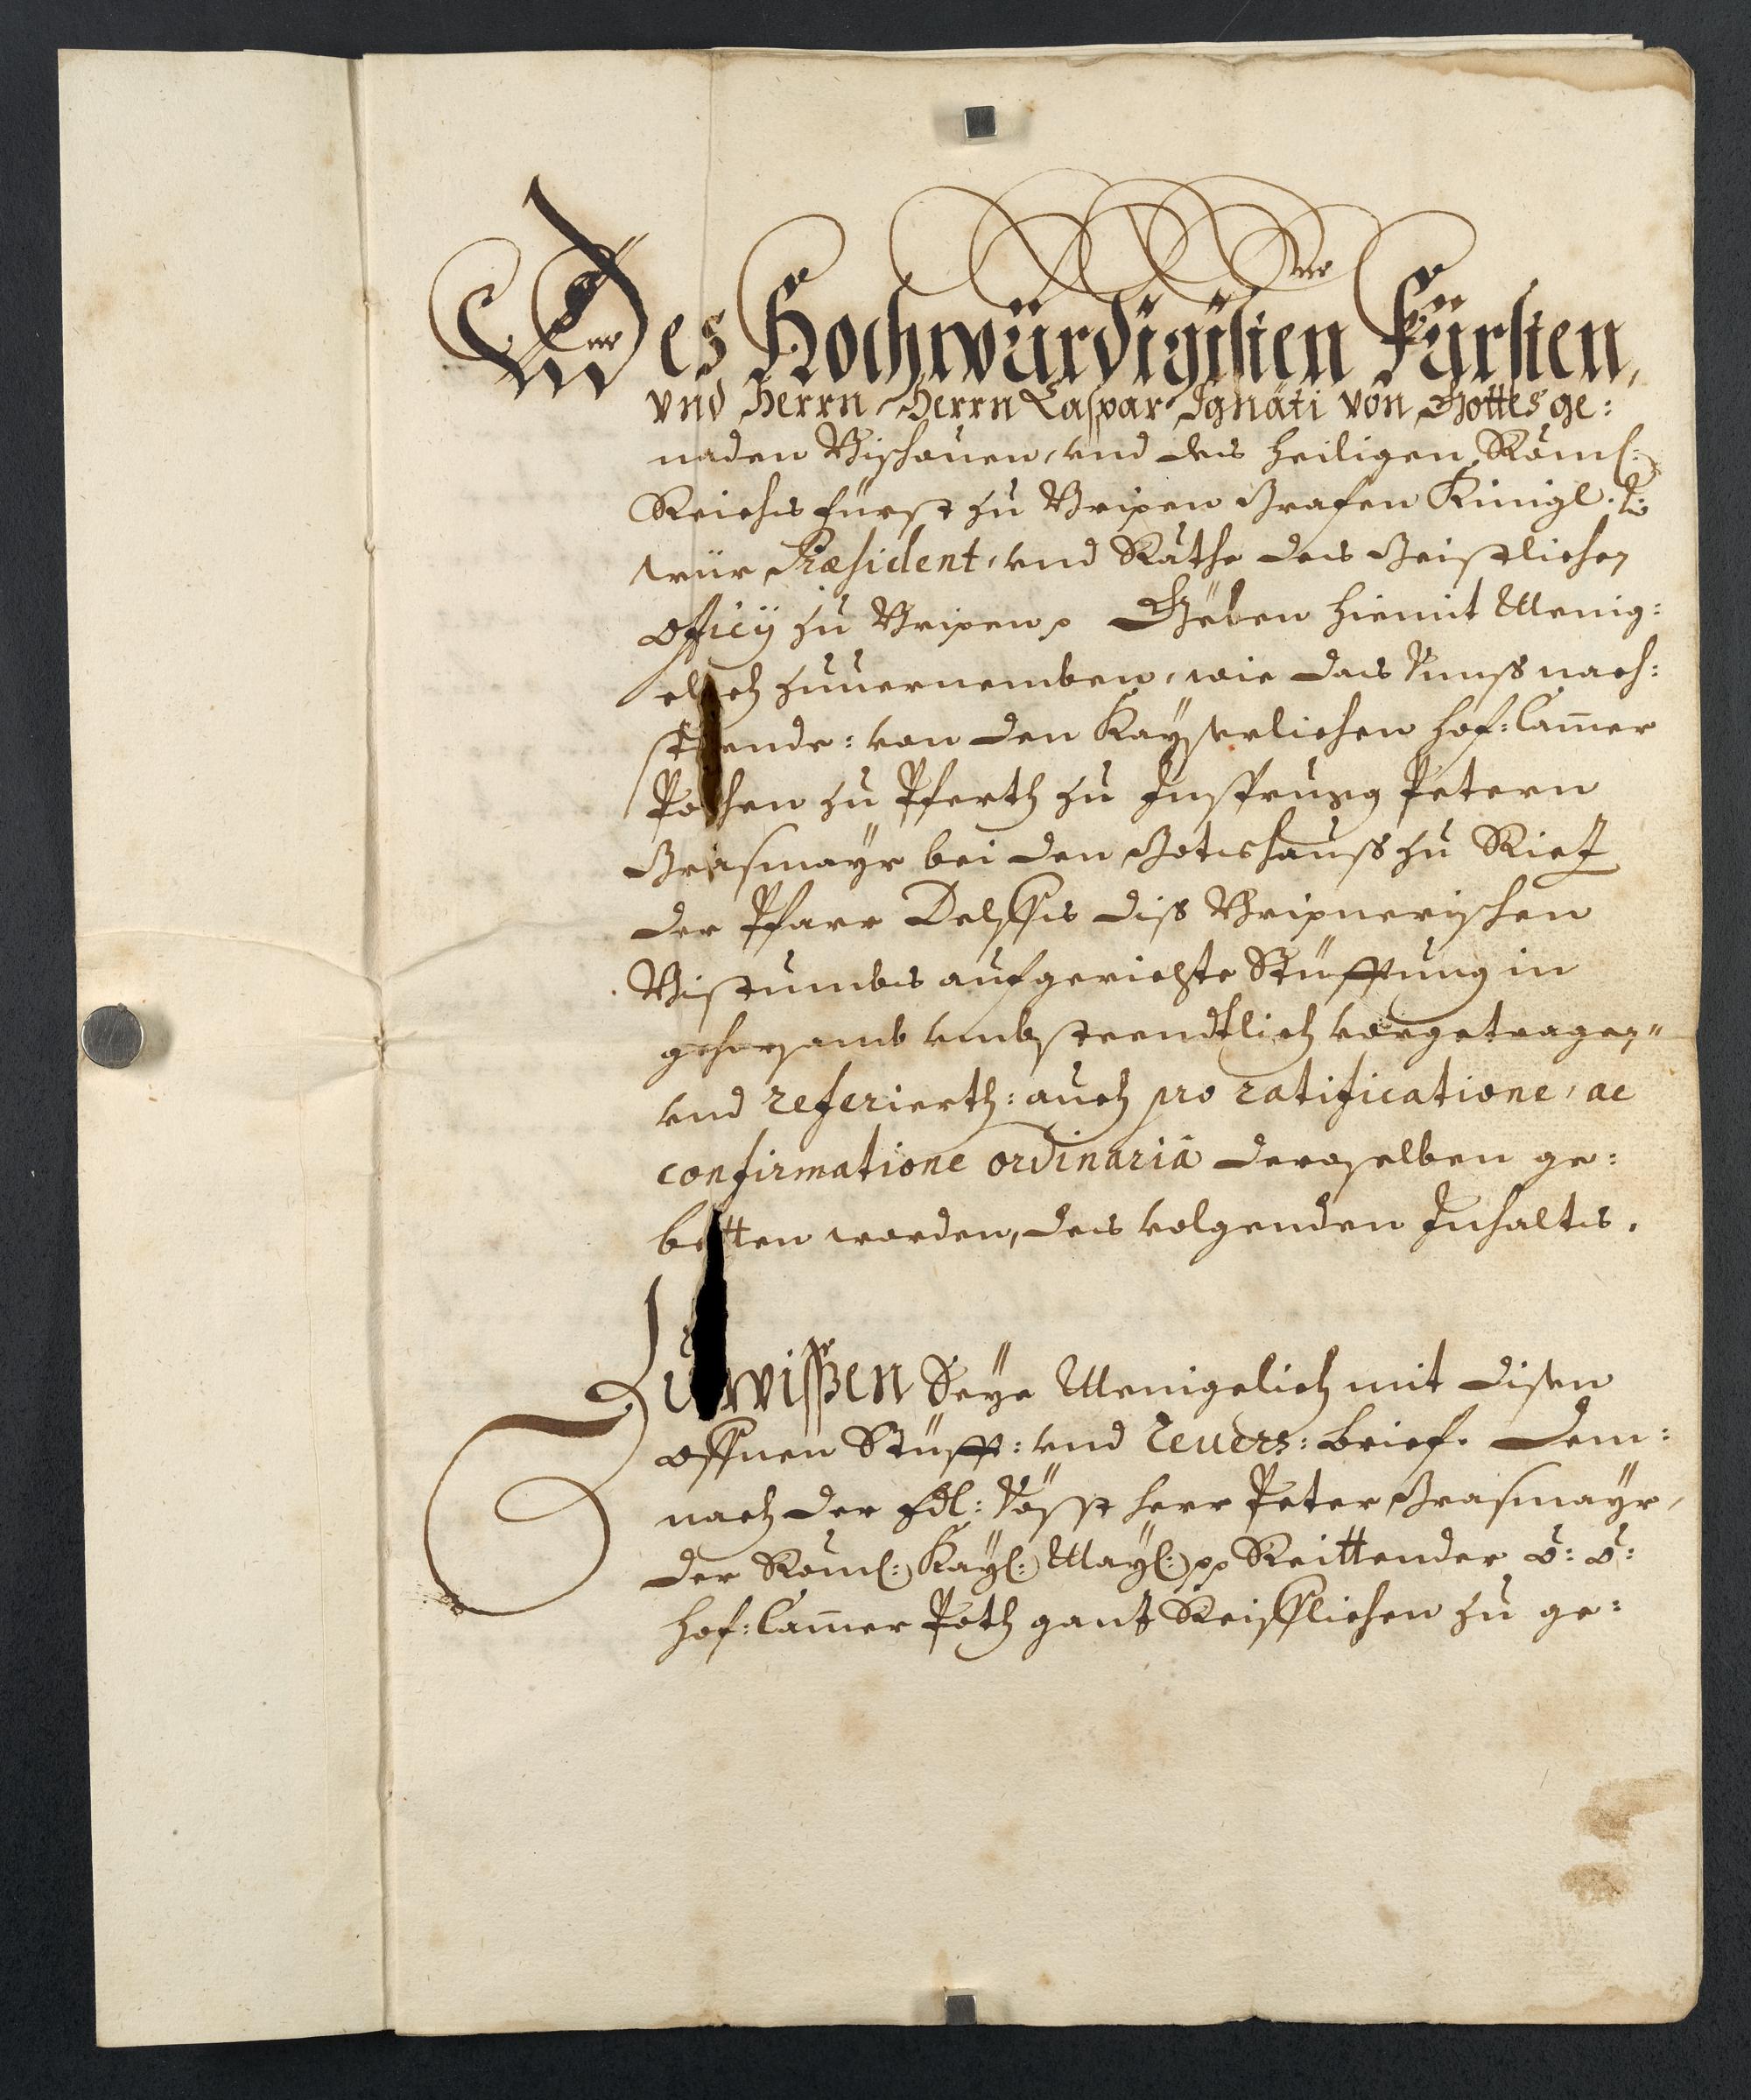 Des Hochwürdigisten Fürsten,
vnd Herrn Herrn Caspar Ignäti von Gottes ge:
naden Bischouen, vnd des heiligen Röm(:
Reichs fürst zu Brixen Grafen Künigl.
wür Præsident, vnd Räthe des Geistlichen
Officij zu Brixen Geben hiemit Menig:
elich zuuernemben, wie das Vnnß nach:
stehende: von den Kayserlichen Hof: Camer
Pothen zu Pferth zu Insprugg Petern
Grasmayr bei den Gotshauß zu Rietz
der Pfarr Delffs diß Brixnerischen
Bistumbs aufgerichte Stüfftung in
gehorsamb vmbstendtlich vorgetragen"
vnd referierth: auch pro ratificatione, ac
confirmatione ordinariâ deroselben ge:
betten worden, des volgenden Inhalts.
Zu wissen Seye Menigelich mit disen
offnen Stüfft: vnd Reuers: brief. Dem:
nach der Edl: Vösst herr Peter Grasmayr,
der Röm(:) Kay(:) May(:) Reittender ö: ö:
Hof: Camer Poth gantz Reifflichen zu ge: